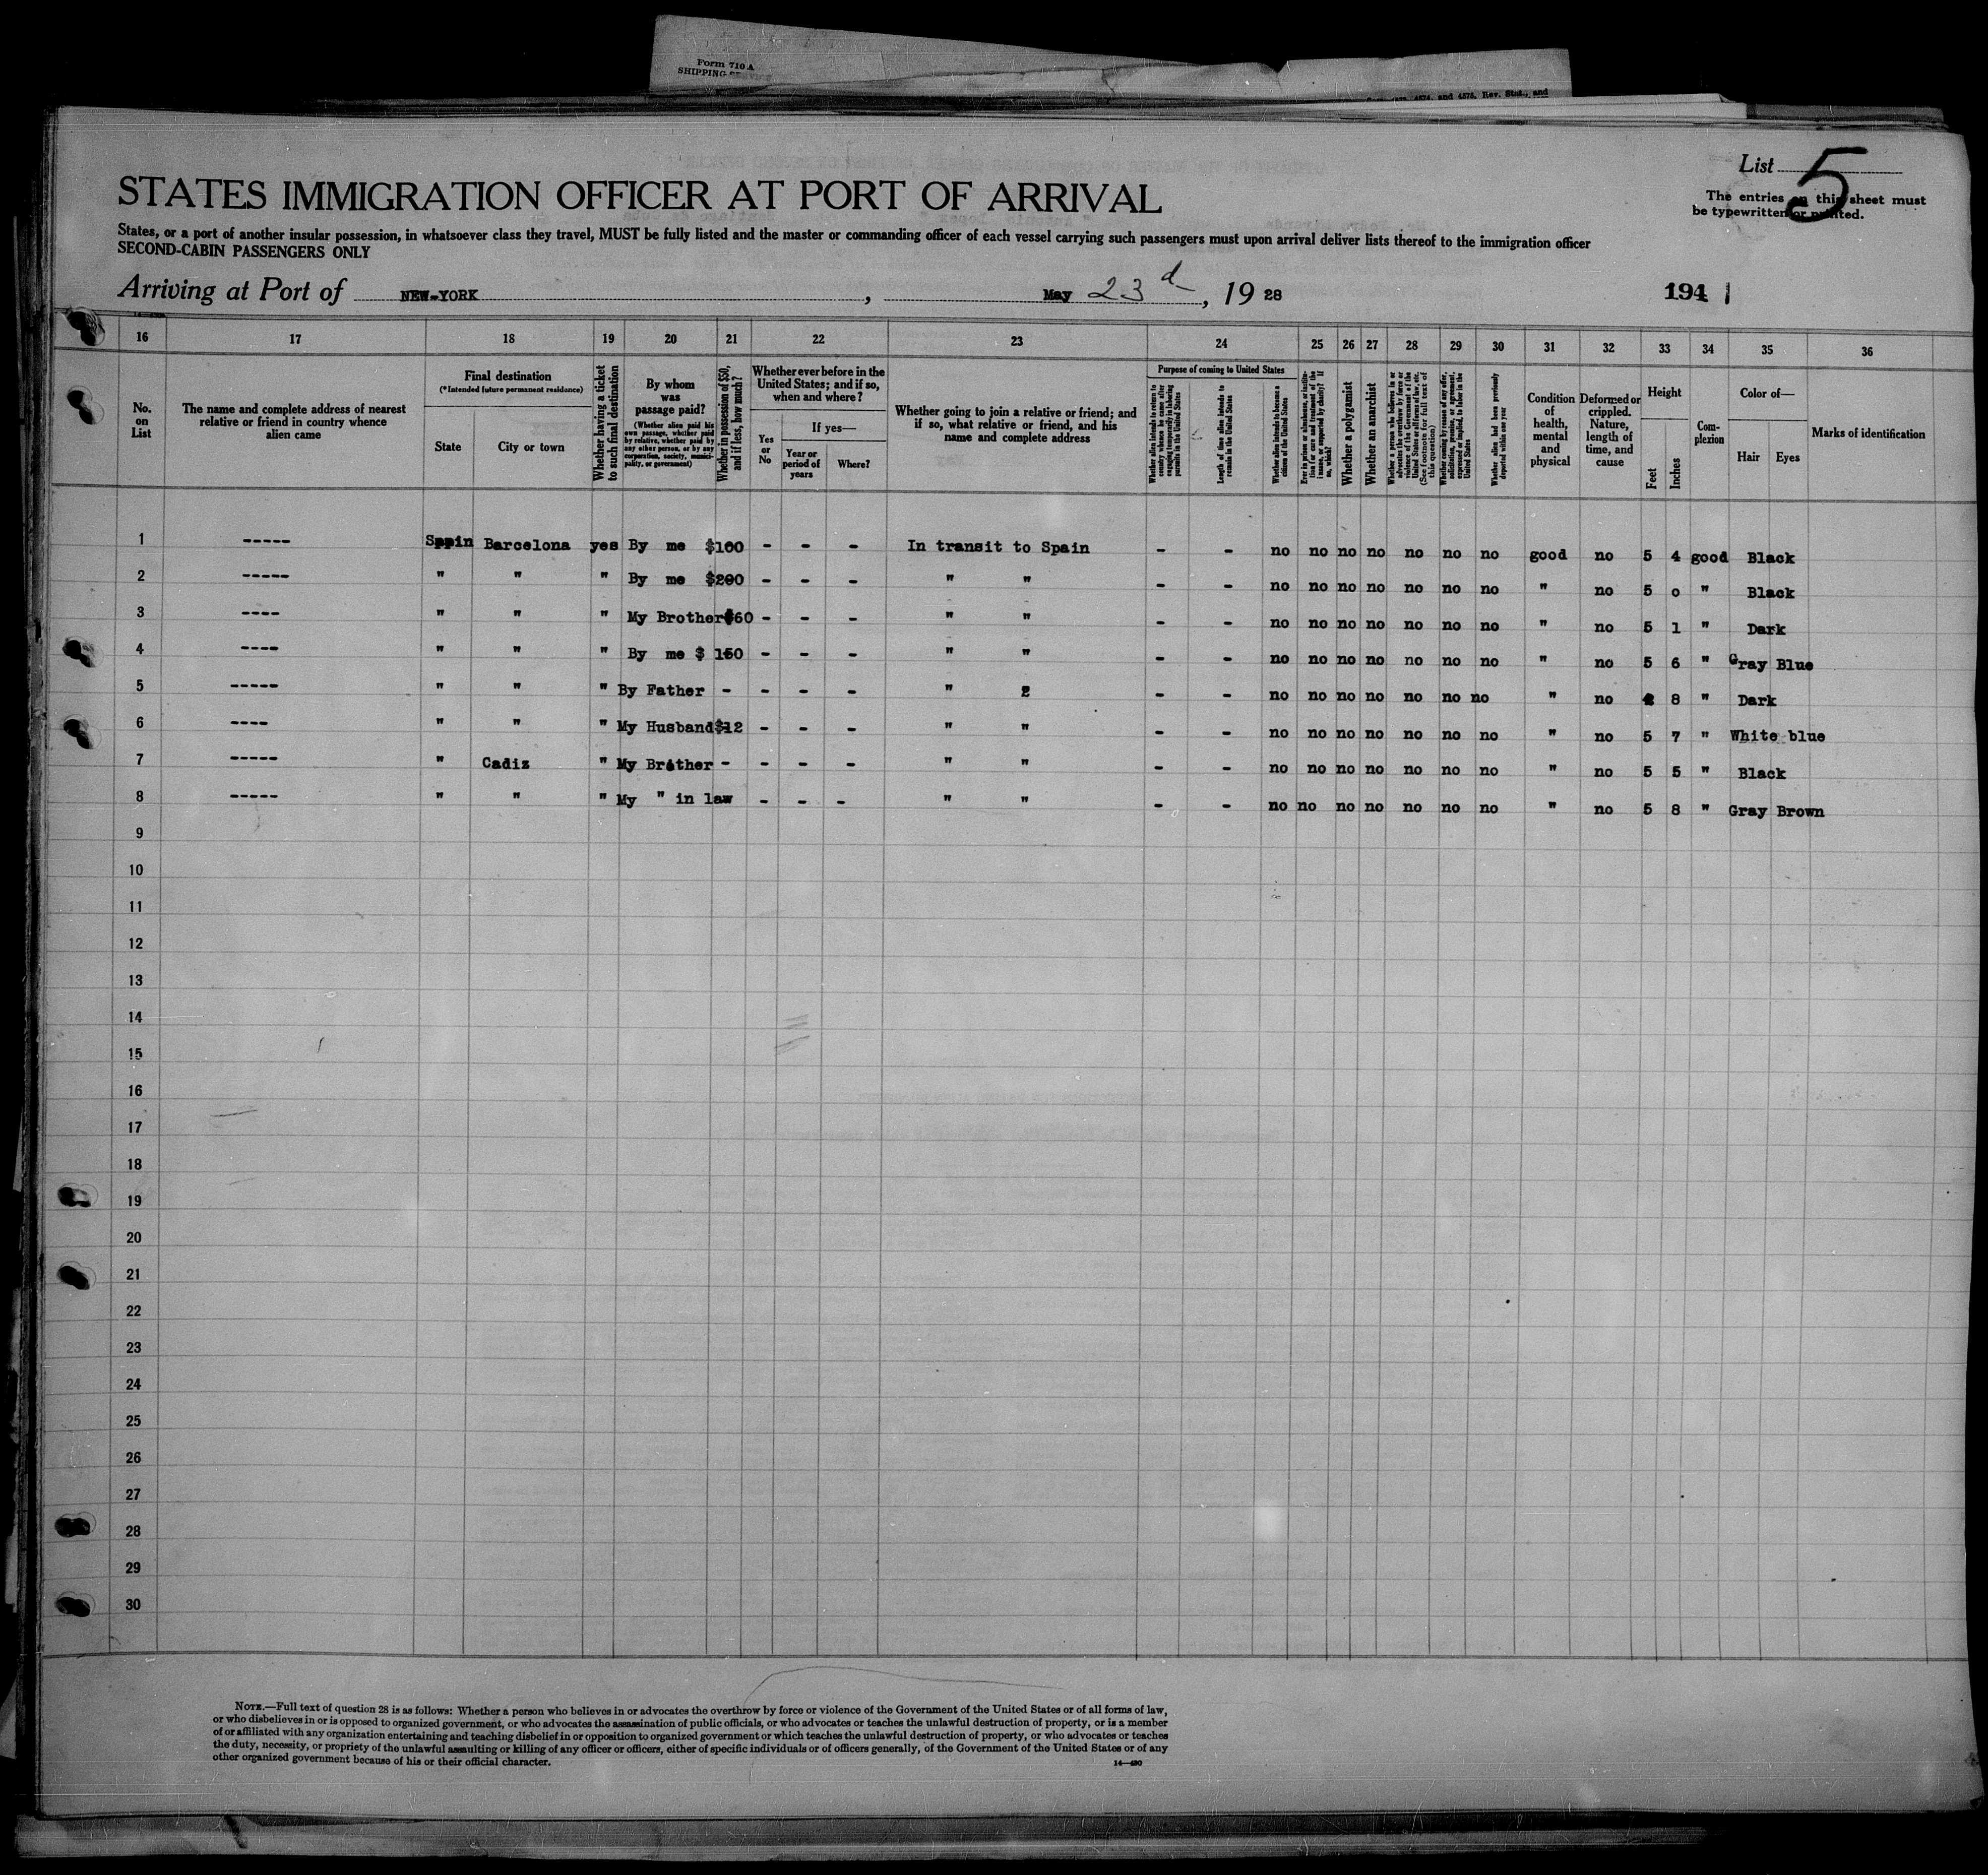 Form 710 A
SHIPPING SERVICE
4574, and 4575, Rev. Stat., and
List 5
The entries on this sheet must
be typewritten or printed.
STATES IMMIGRATION OFFICER AT PORT OF ARRIVAL
States, or a port of another insular possession, in whatsoever class they travel, MUST be fully listed and the master or commanding officer of each vessel carrying such passengers must upon arrival deliver lists thereof to the immigration officer
SECOND-CABIN PASSENGERS ONLY
Arriving at Port of NEW-YORK, May 23d, 19 28 194
16 17 18 19 20 21 22 23 24 25 26 27 28 29 30 31 32 33 34 35 36
No. on List
The name and complete address of nearest relative or friend in country whence alien came
Final destination
(*Intended future permanent residence)
State
City or town
Whether having a ticket to such final destination
By whom was passage paid?
(Whether alien paid his own passage, whether paid by relative, whether paid by any other person, or by any corporation, society, municipality, or government)
Whether in possession of $50, and if less, how much?
Whether ever before in the United States; and if so, when and where?
Yes or No
If yes—
Year or period of years
Where?
Whether going to join a relative or friend; and if so, what relative or friend, and his name and complete address
Purpose of coming to United States
Whether alien intends to return to country whence he came after engaging temporarily in laboring pursuits in the United States
Length of time alien intends to remain in the United States
Whether alien intends to become a citizen of the United States
Ever in prison or almshouse, or institution for care and treatment of the insane, or supported by charity? If so, which?
Whether a polygamist
Whether an anarchist
Whether a person who believes in or advocates the overthrow by force or violence of the Government of the United States or all forms of law, etc. (See footnote for full text of this question)
Whether coming by reason of any offer, solicitation, promise, or agreement, expressed or implied, to labor in the United States
Whether alien had been previously deported within one year
Condition of health, mental and physical
Deformed or crippled. Nature, length of time, and cause
Height
Feet
Inches
Complexion
Color of—
Hair
Eyes
Marks of identification
1 ----- Spain Barcelona yes By me $100 - - - In transit to Spain - - no no no no no no no good no 5 4 good Black
2 ----- " " " By me $200 - - - " " - - no no no no no no no " no 5 0 " Black
3 ---- " " " My Brother $60 - - - " " - - no no no no no no no " no 5 1 " Dark
4 ---- " " " By me $ 150 - - - " " - - no no no no no no no " no 5 6 " Gray Blue
5 ----- " " " By Father - - - - " 2 - - no no no no no no no " no 8 " Dark
6 ---- " " " My Husband $12 - - - " " - - no no no no no no no " no 5 7 " White blue
7 ----- " Cadiz " My Brother - - - - " " - - no no no no no no no " no 5 5 " Black
8 ----- " " " My " in law - - - " " - - no no no no no no no " no 5 8 " Gray Brown
9
10
11
12
13
14
15
16
17
18
19
20
21
22
23
24
25
26
27
28
29
30
NOTE.—Full text of question 28 is as follows: Whether a person who believes in or advocates the overthrow by force or violence of the Government of the United States or of all forms of law,
or who disbelieves in or is opposed to organized government, or who advocates the assassination of public officials, or who advocates or teaches the unlawful destruction of property, or is a member
of or affiliated with any organization entertaining and teaching disbelief in or opposition to organized government or which teaches the unlawful destruction of property, or who advocates or teaches
the duty, necessity, or propriety of the unlawful assaulting or killing of any officer or officers, either of specific individuals or of officers generally, of the Government of the United States or of any
other organized government because of his or their official character.
14—430